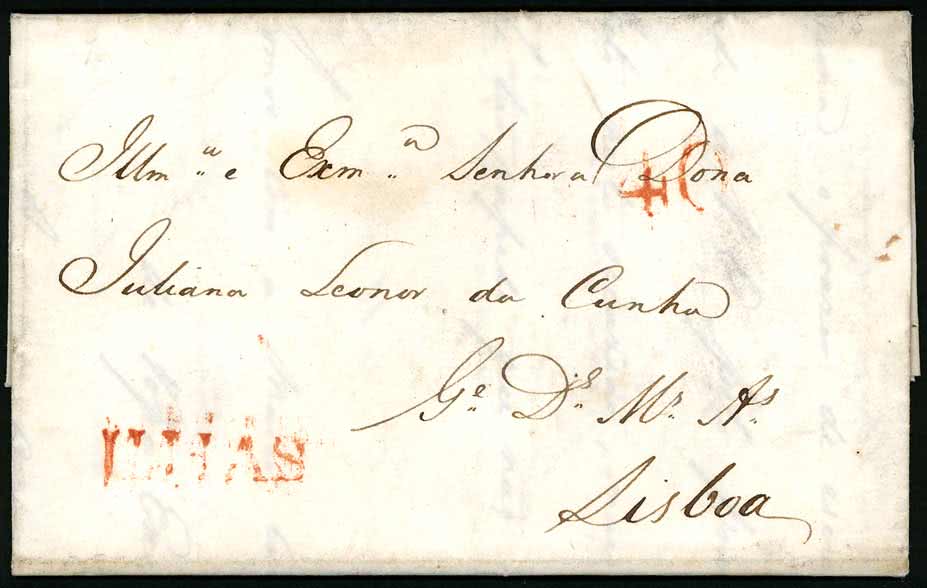 Illm.ª e Exm.ª Senhora Dona
40
Juliana Leonor da Cunha
G.e D.s M.s A.s
ILHAS
Lisboa